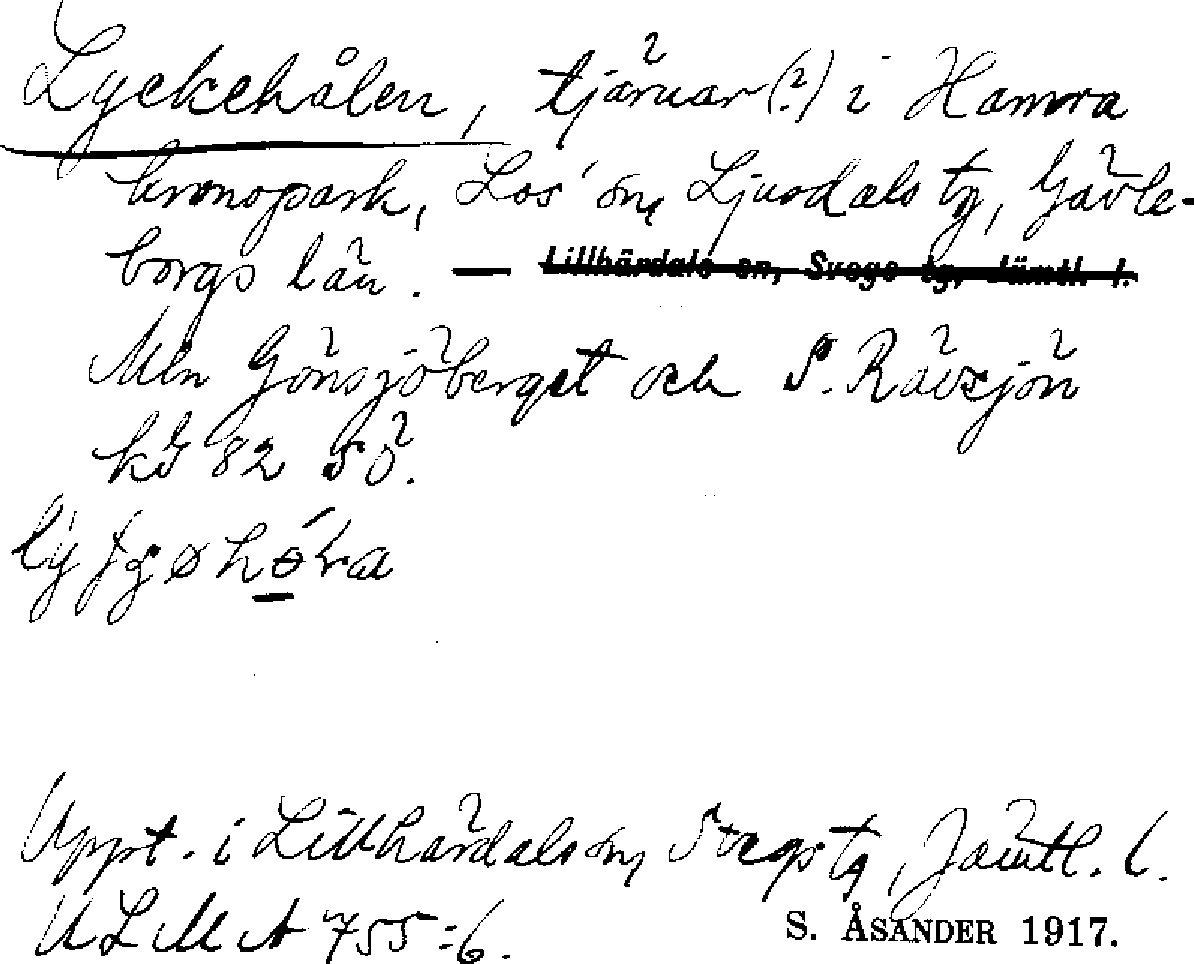 Lyckehålen, tjärnar (?) i Hamra
kronopark, Los' sn, Ljusdals tg, Gävle-
borgs län. — Lillhärdals sn, Svegs tg, Jämtl. l.
Mln Gönsjöberget och S. Rävsjön
kg 82 SÖ.
Uppt. i Lillhärdals sn, Svegs tg, Jämtl. l.
ULMA 755:6. S. ÅSANDER 1917.